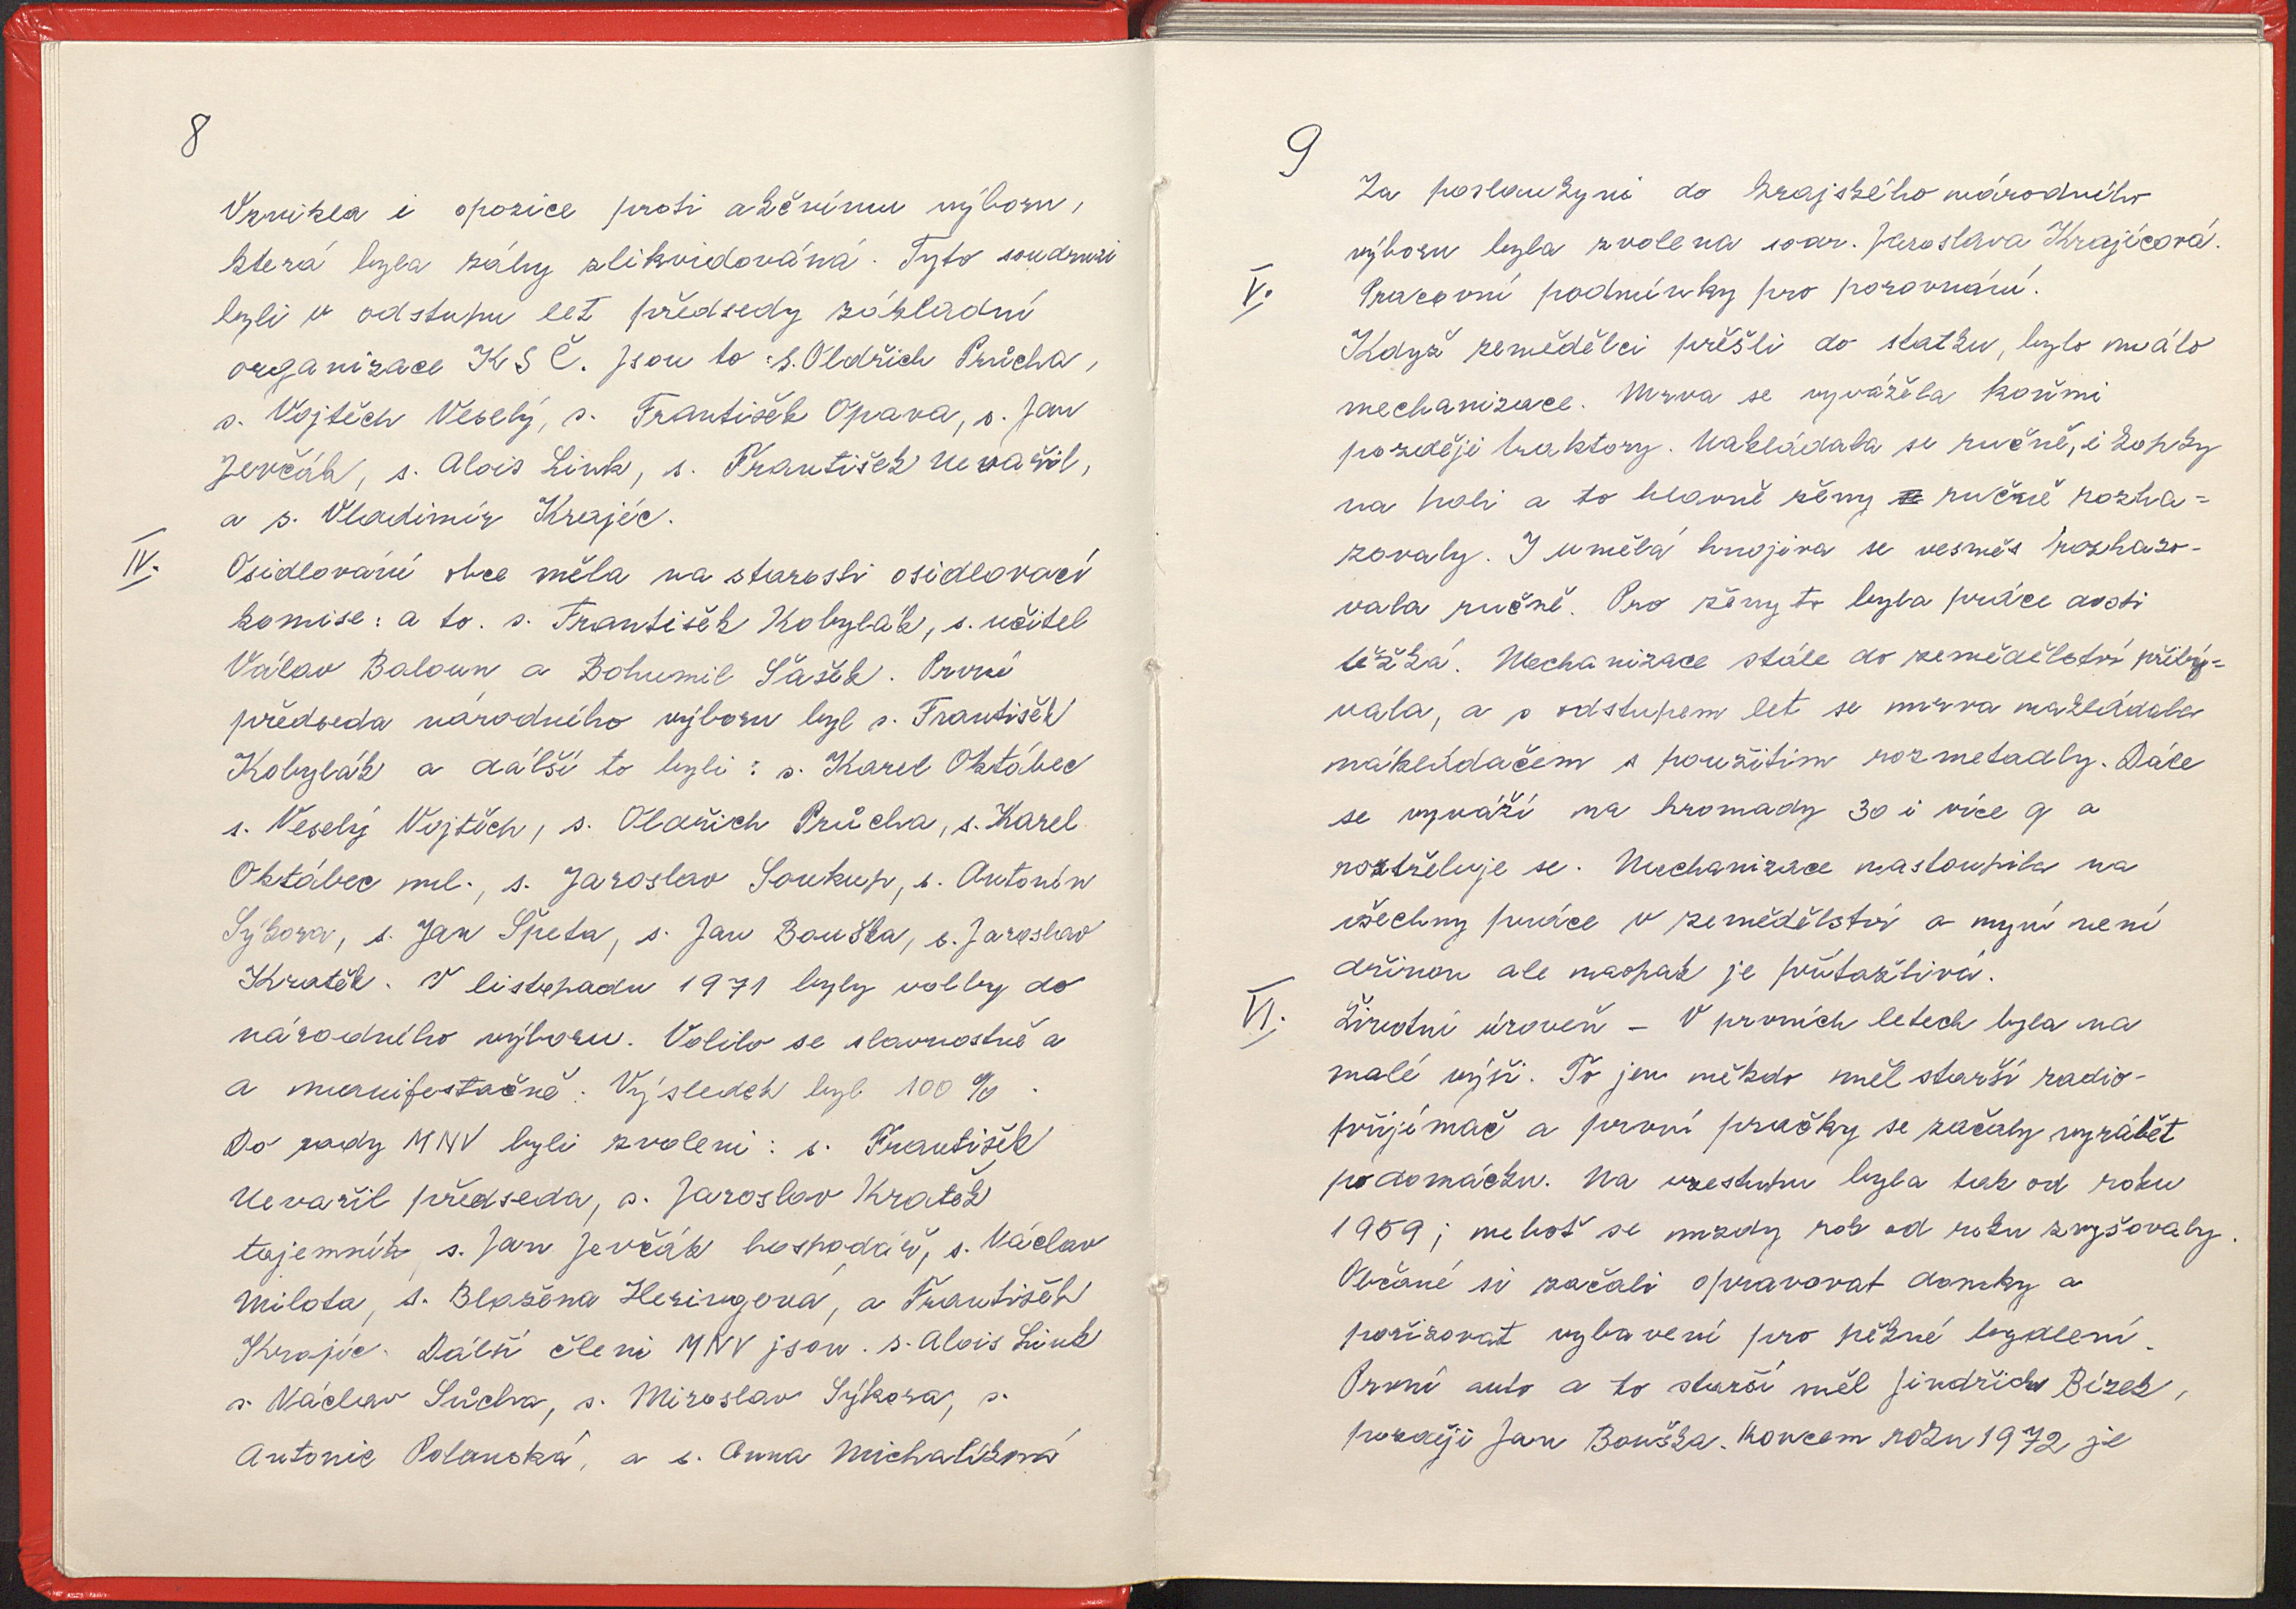 8
Vznikla i opozice proti akčnímu výboru,
která byla záhy zlikvidováná. Tyto soudruzi
byli v odstupu let předsedy základní
organizace KSČ. Jsou to: s. Oldřich Průcha,
s. Vojtěch Veselý, s. František Opava, s. Jan
Jevčák, s. Alois Link, s. František Nevařil,
a s. Vladimír Krajíc.
IV. Osidlování obce měla na starosti osidlovací
komise: a to. s. František Kobylák, s. učitel
Válav Baloun a Bohumil Šašek. První
předseda národního výboru byl s. František
Kobylák a dálší to byli: s. Karel Oktábec
s. Veselý Vojtěch, s. Oldřich Průcha, s. Karel
Oktábec ml., s. Jaroslav Soukup, s. Antonín
Sýkora, s. Jan Špeta, s. Jan Bouška, s. Jaroslav
Kratěk. V listopadu 1971 byly volby do
národního výboru. Volilo se slavnostně a
a manifestačně: Výsledek byl 100 %.
Do rady MNV byli zvoleni: s. František
Nevařil předseda, s. Jaroslav Kratěk
tajemník, s. Jan Jevčák hospodář, s. Václav
Milota, s. Blažena Heringová, a František
Krajíc. Dálší členi MNV jsou. s. Alois Link
s. Václav Sůcha, s. Miroslav Sýkora, s.
Antonie Polanská, a s. Anna Michalíková
9
Za poslankyni do krajského národního
výboru byla zvolena soar. Jaroslava Krajícová.
V. Pracovní podmínky pro porovnání.
Když zemědělci přěšli do statku, bylo málo
mechanizace. Mrva se vyvážela koňmi
pozdější traktory. Nakládala se ručně, i kopky
na poli a to hlavně ženy ručně rozha=
zovaly. I umělá hnojiva se vesměs rozhazo-
vala ručně. Pro ženy to byla práce dosti
těžká. Mechanizace stále do zemědělství přibý=
vala, a s odstupem let se mrva nakládala
nákladačem s použitím rozmetadly. Dále
se vyváží na hromady 30 i více q a
roztřeluje se. Mechanizace nastoupila na
všechny práce v zemědělství a nyní není
dřinou ale naopak je přitažlivá.
VI. Životní úroveň – V prvních letech byla na
malé výši. To jen někdo měl starší radio-
přijímač a první pračky se začaly vyrábět
podomácku. Na vzestupu byla tak od roku
1959; neboť se mzdy rok od roku zvyšovaly.
Občané si začali opravovat domky a
pořizovat vybavení pro pěkné bydlení.
První auto a to starší měl Jindřich Bízek,
později Jan Bouška. Koncem roku 1972 je